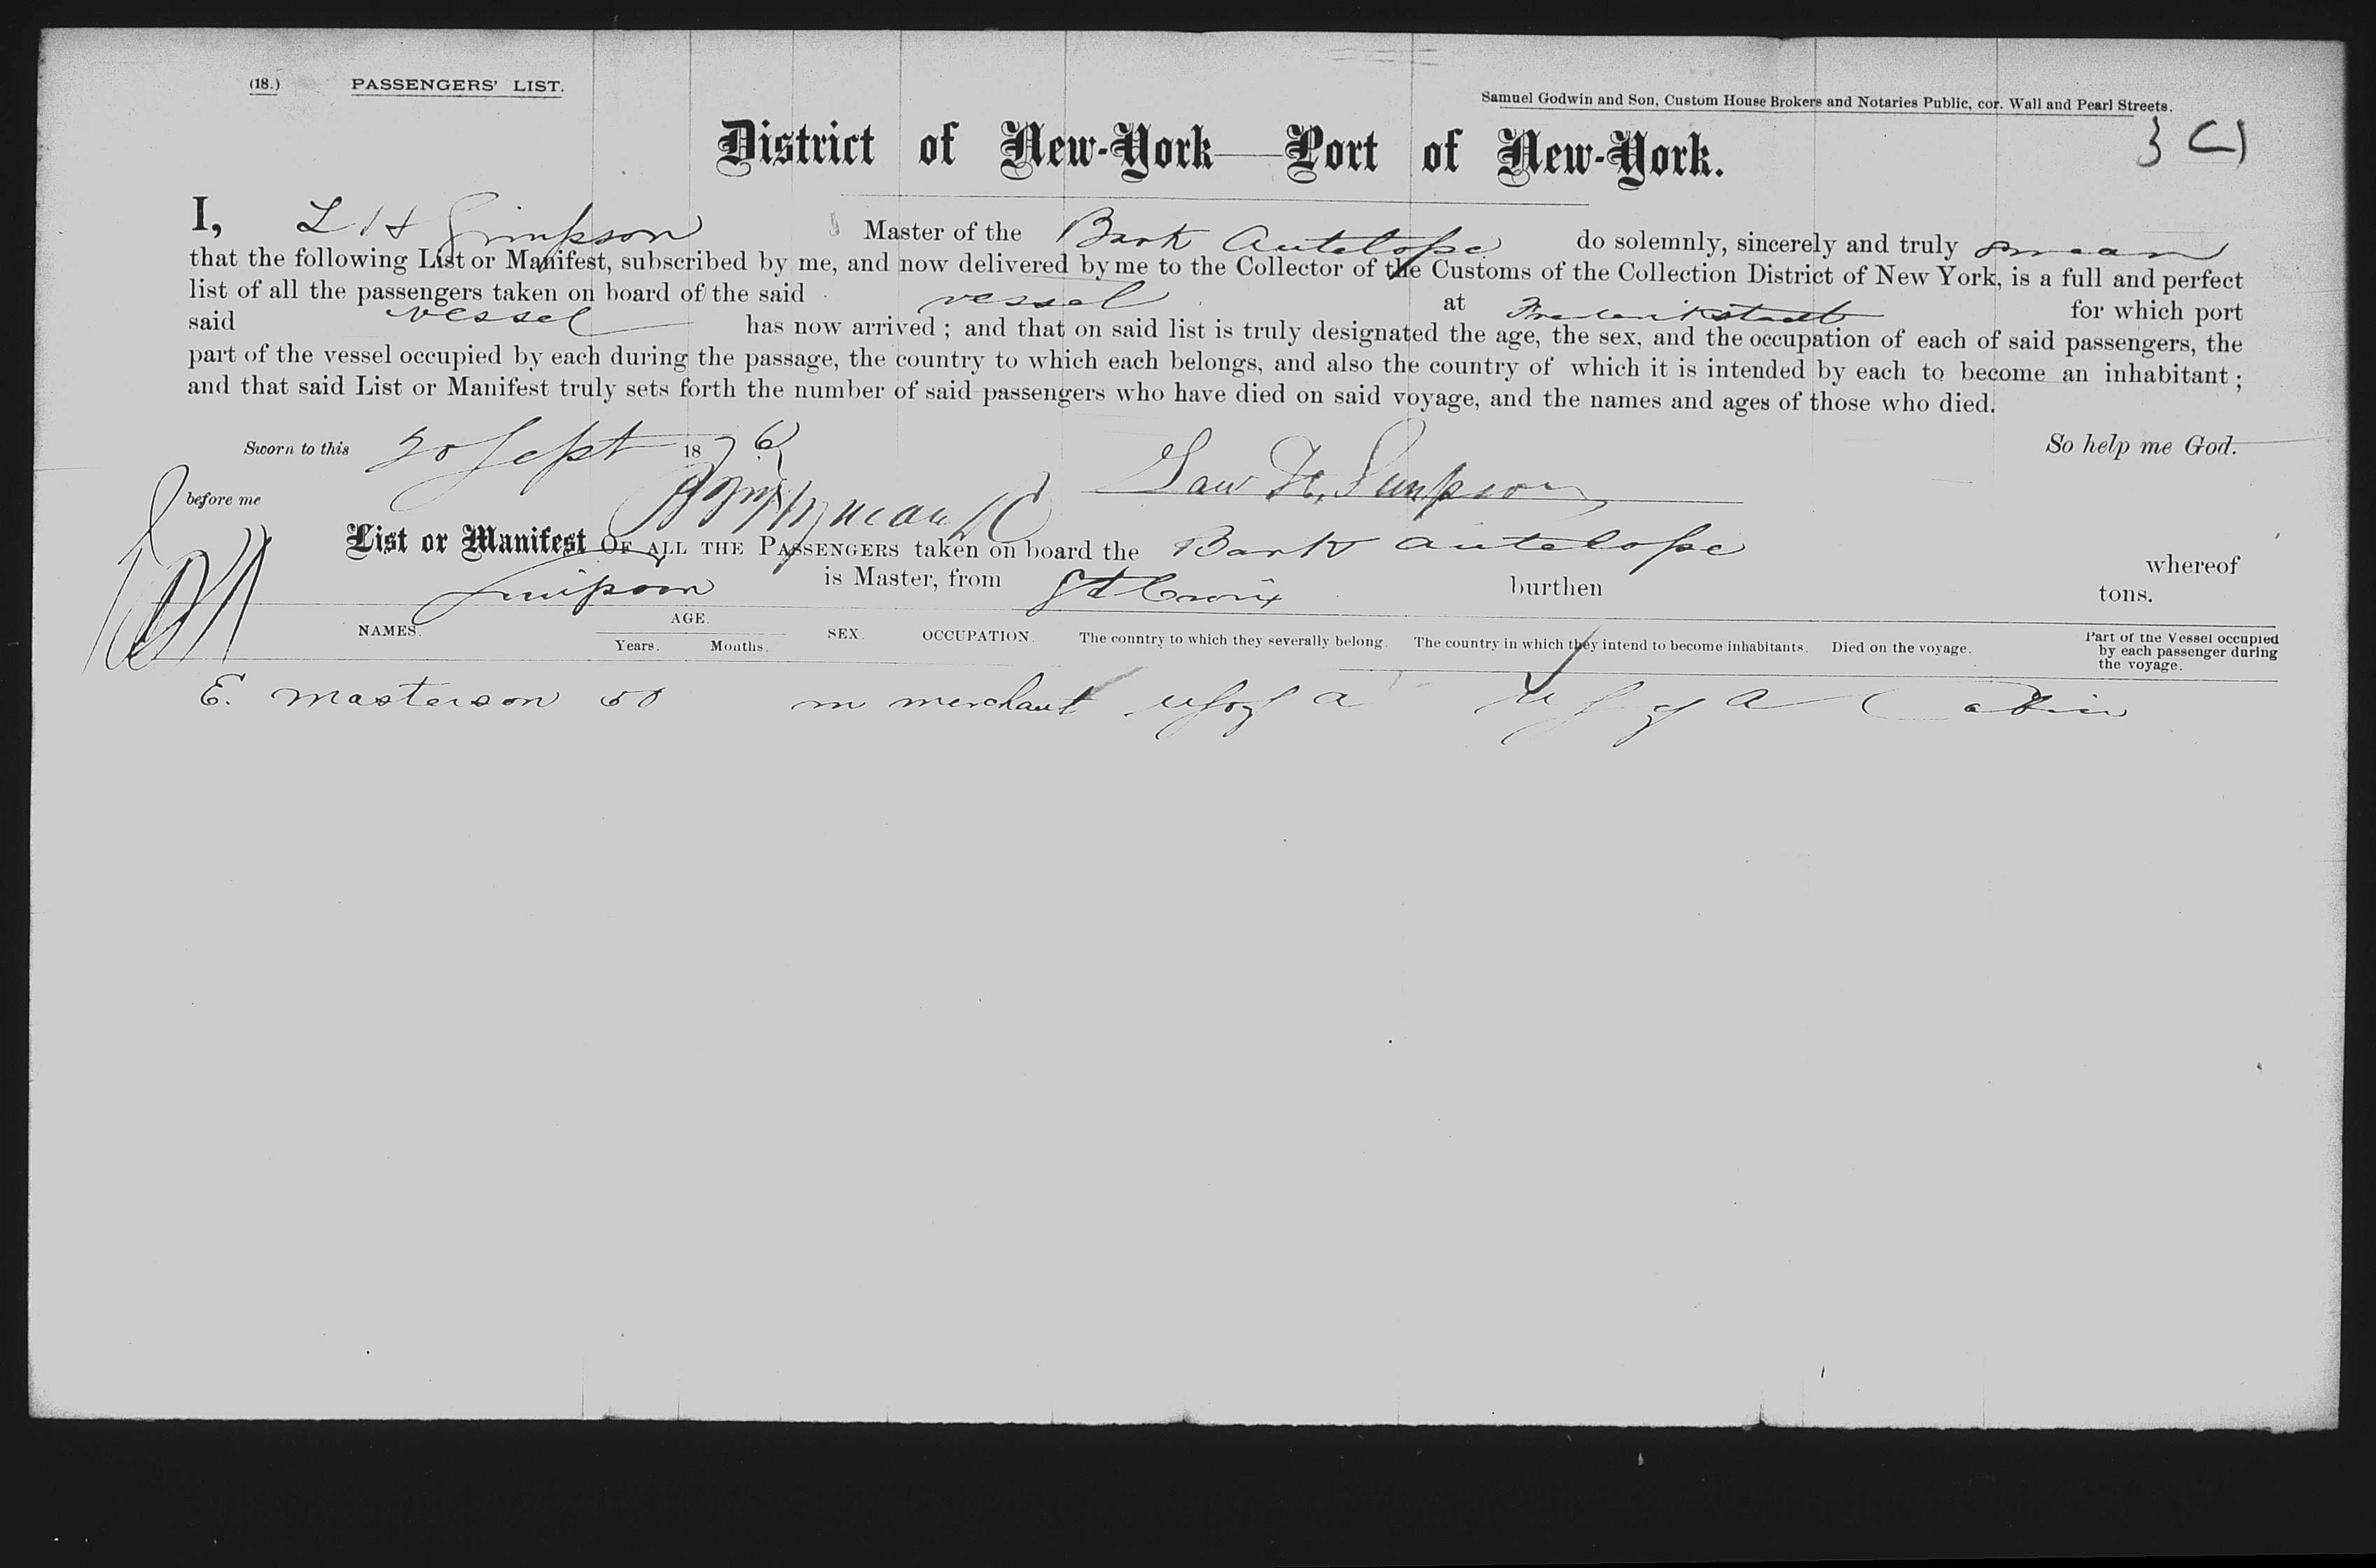 (18.) PASSENGERS' LIST.
Samuel Godwin and Son, Custom House Brokers and Notaries Public, cor. Wall and Pearl Streets.
District of New-York—Port of New-York.
I, L H Simpson Master of the Bark Antelope do solemnly, sincerely and truly swear
that the following List or Manifest, subscribed by me, and now delivered by me to the Collector of the Customs of the Collection District of New York, is a full and perfect
list of all the passengers taken on board of the said vessel at Frederikstadt for which port
said vessel has now arrived ; and that on said list is truly designated the age, the sex, and the occupation of each of said passengers, the
part of the vessel occupied by each during the passage, the country to which each belongs, and also the country of which it is intended by each to become an inhabitant ;
and that said List or Manifest truly sets forth the number of said passengers who have died on said voyage, and the names and ages of those who died.
So help me God.
Sworn to this 20 Sept 1876
Law H. Simpson
before me
List or Manifest OF ALL THE PASSENGERS taken on board the Bark Antelope whereof
Simpson is Master, from St Croix burthen tons.
NAMES. AGE. Years. Months. SEX. OCCUPATION. The country to which they severally belong. The country in which they intend to become inhabitants. Died on the voyage. Part of the Vessel occupied by each passenger during the voyage.
E. Masterson 50 m merchant U S of A U S of A Cabin